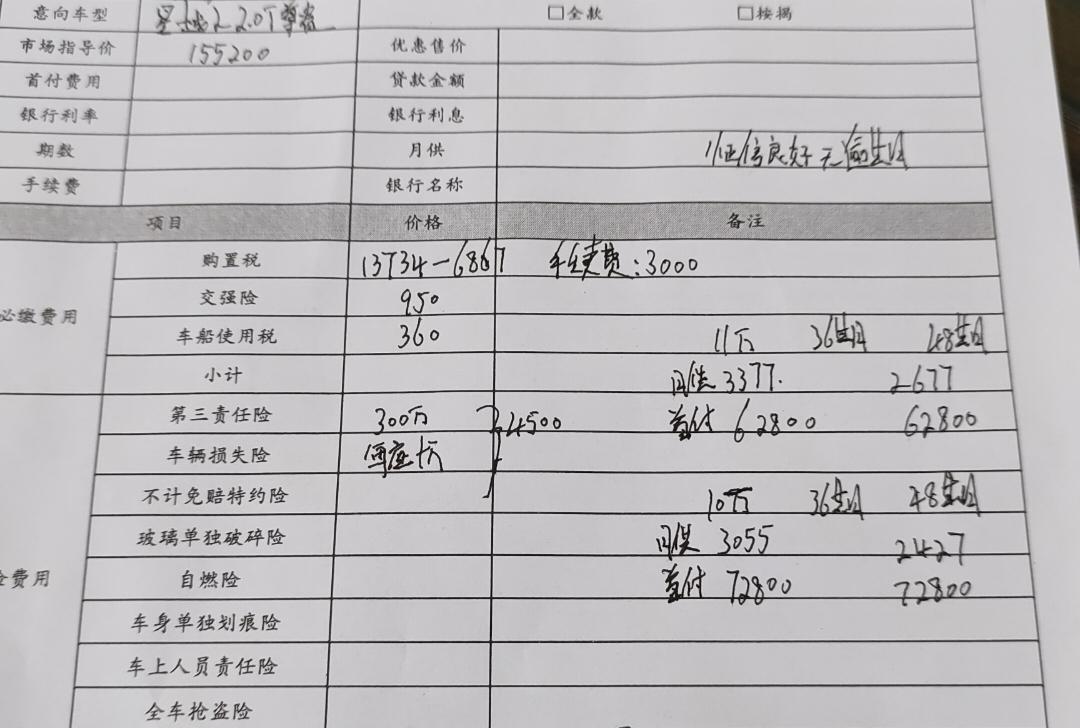 意向车型 星越L 2.0T尊贵 □全款 □按揭
市场指导价 155200 优惠售价
首付费用 贷款金额
银行利率 银行利息
期数 月供 征信良好 无
手续费 银行名称
项目 价格 备注
购置税 13734-6867 手续费:3000
必缴费用 交强险 950
车船使用税 360 11万 36期 48期
小计 月供 3377. 2677
第三责任险 300万 4500 首付 62800 62800
车辆损失险
不计免赔特约险 10万 36期 48期
玻璃单独破碎险 月供 3055 2427
费用 自燃险 首付 72800 72800
车身单独划痕险
车上人员责任险
全车抢盗险